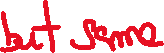 but some